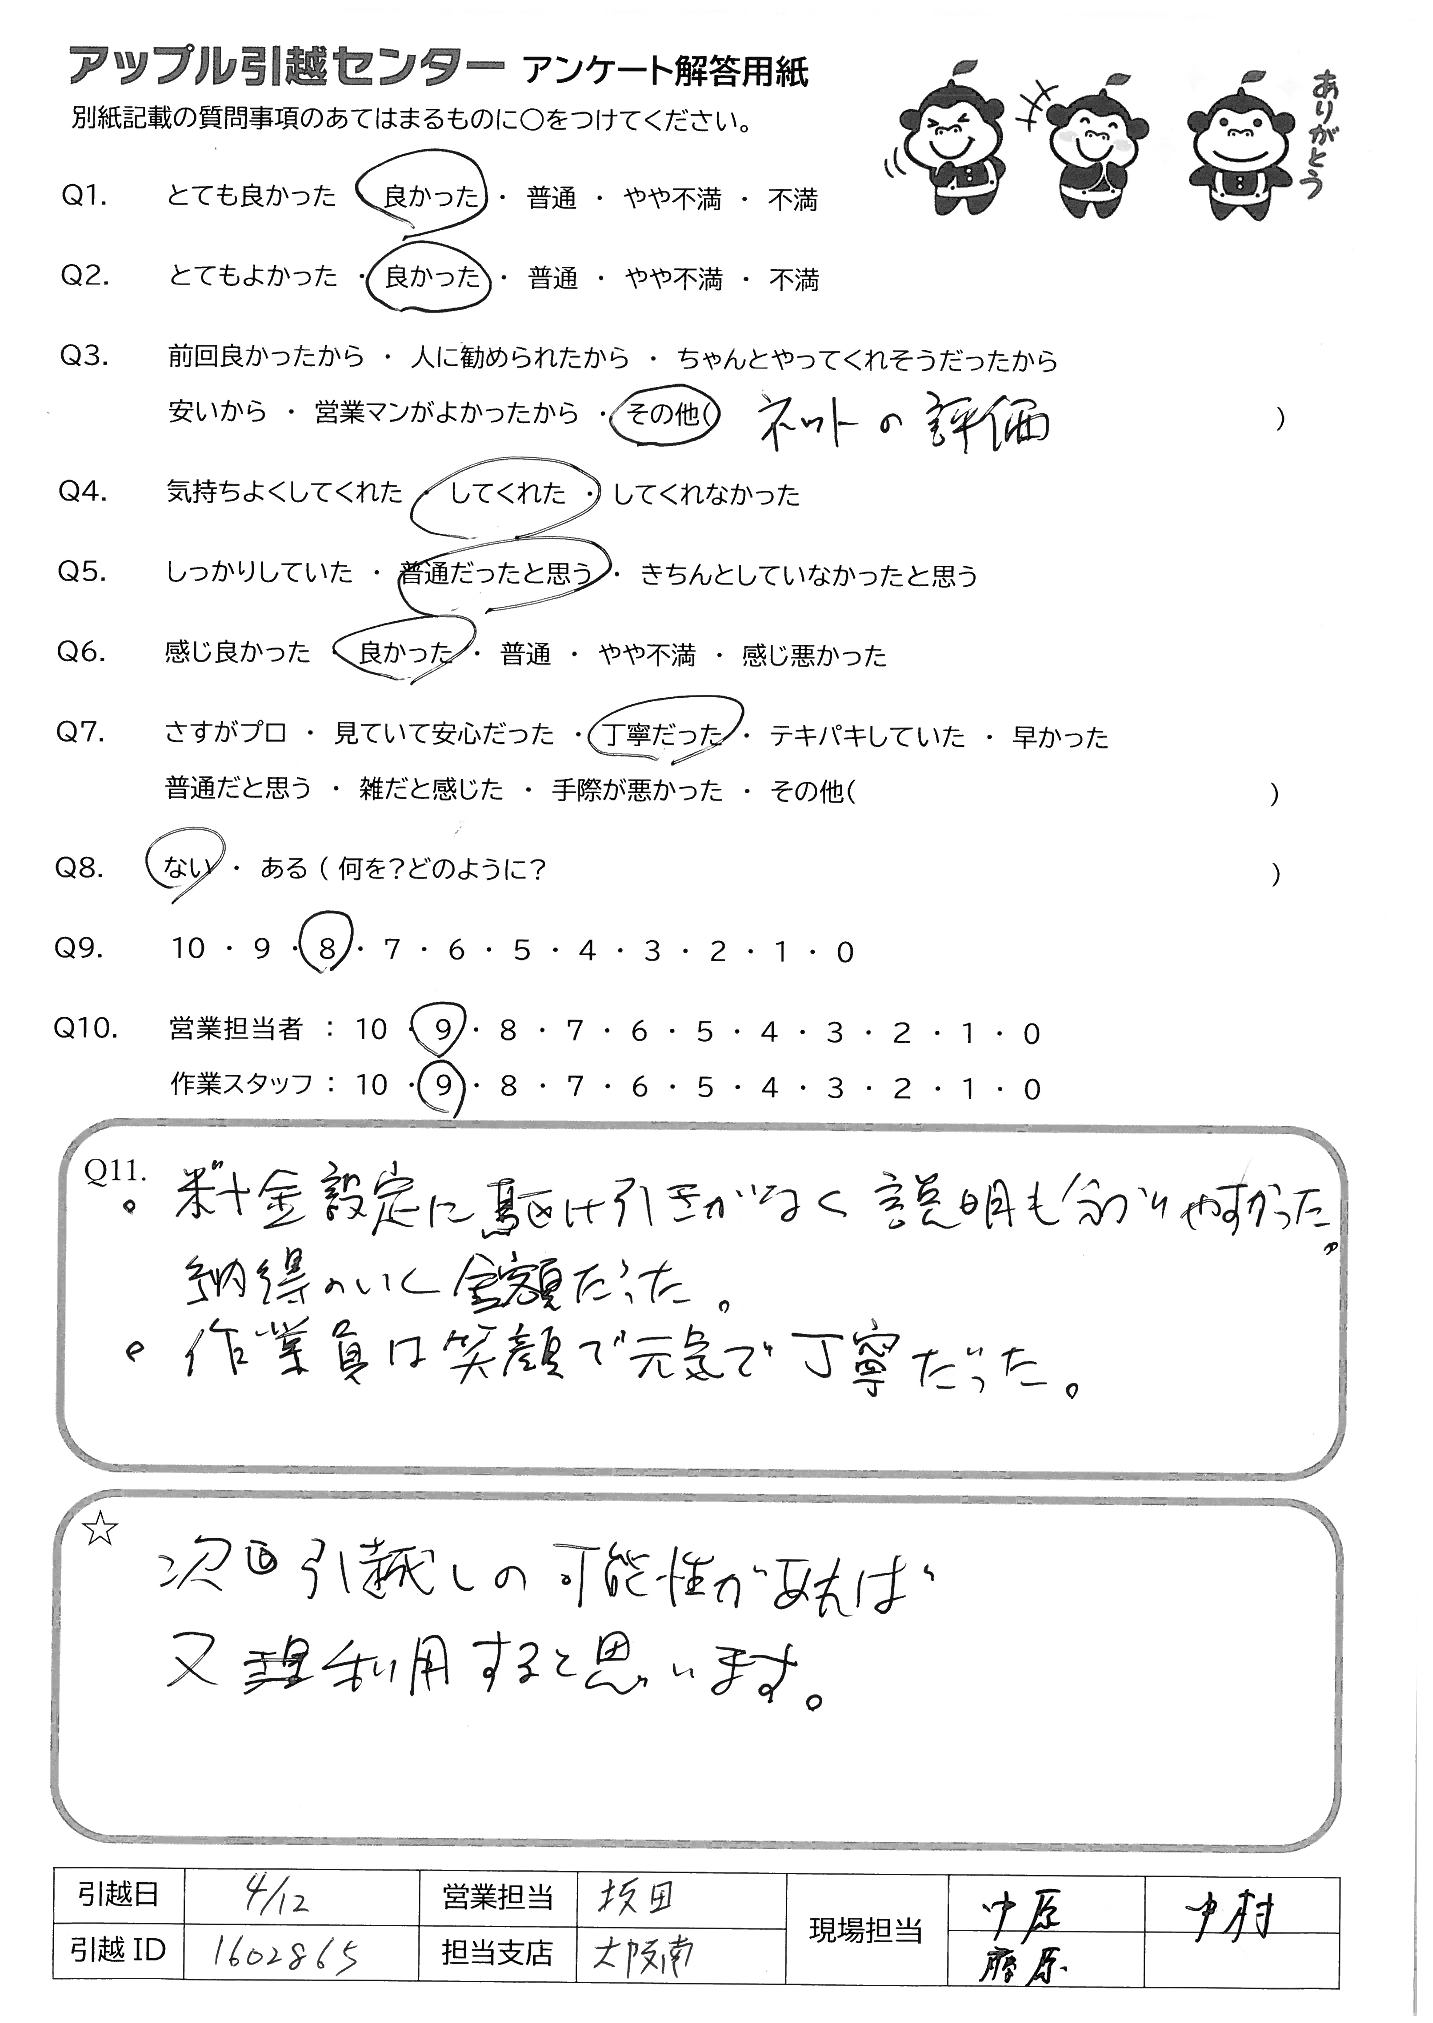 アップル引越センター アンケート解答用紙
ありがとう
別紙記載の質問事項のあてはまるものに〇をつけてください。
Q1. とても良かった 良かった ・ 普通 ・ やや不満 ・ 不満
Q2. とてもよかった ・ 良かった ・ 普通 ・ やや不満 ・ 不満
Q3. 前回良かったから ・ 人に勧められたから ・ ちゃんとやってくれそうだったから
安いから ・ 営業マンがよかったから ・ その他( ネットの評価 )
Q4. 気持ちよくしてくれた ・ してくれた ・ してくれなかった
Q5. しっかりしていた ・ 普通だったと思う ・ きちんとしていなかったと思う
Q6. 感じ良かった ・ 良かった ・ 普通 ・ やや不満 ・ 感じ悪かった
Q7. さすがプロ ・ 見ていて安心だった ・ 丁寧だった ・ テキパキしていた ・ 早かった
普通だと思う ・ 雑だと感じた ・ 手際が悪かった ・ その他( )
Q8. ない ・ ある ( 何を?どのように? )
Q9. 10 ・ 9 ・ 8 ・ 7 ・ 6 ・ 5 ・ 4 ・ 3 ・ 2 ・ 1 ・ 0
Q10. 営業担当者 : 10 ・ 9 ・ 8 ・ 7 ・ 6 ・ 5 ・ 4 ・ 3 ・ 2 ・ 1 ・ 0
作業スタッフ : 10 ・ 9 ・ 8 ・ 7 ・ 6 ・ 5 ・ 4 ・ 3 ・ 2 ・ 1 ・ 0
Q11.
。料金設定に駆け引きがなく説明も分かりやすかった。
納得のいく金額だった。
。作業員は笑顔で元気で丁寧だった。
☆
次回引越しの可能性があれば
又利用すると思います。
引越日 4/12 営業担当 坂田 現場担当 中原 中村
引越ID 1602865 担当支店 大阪南 藤原